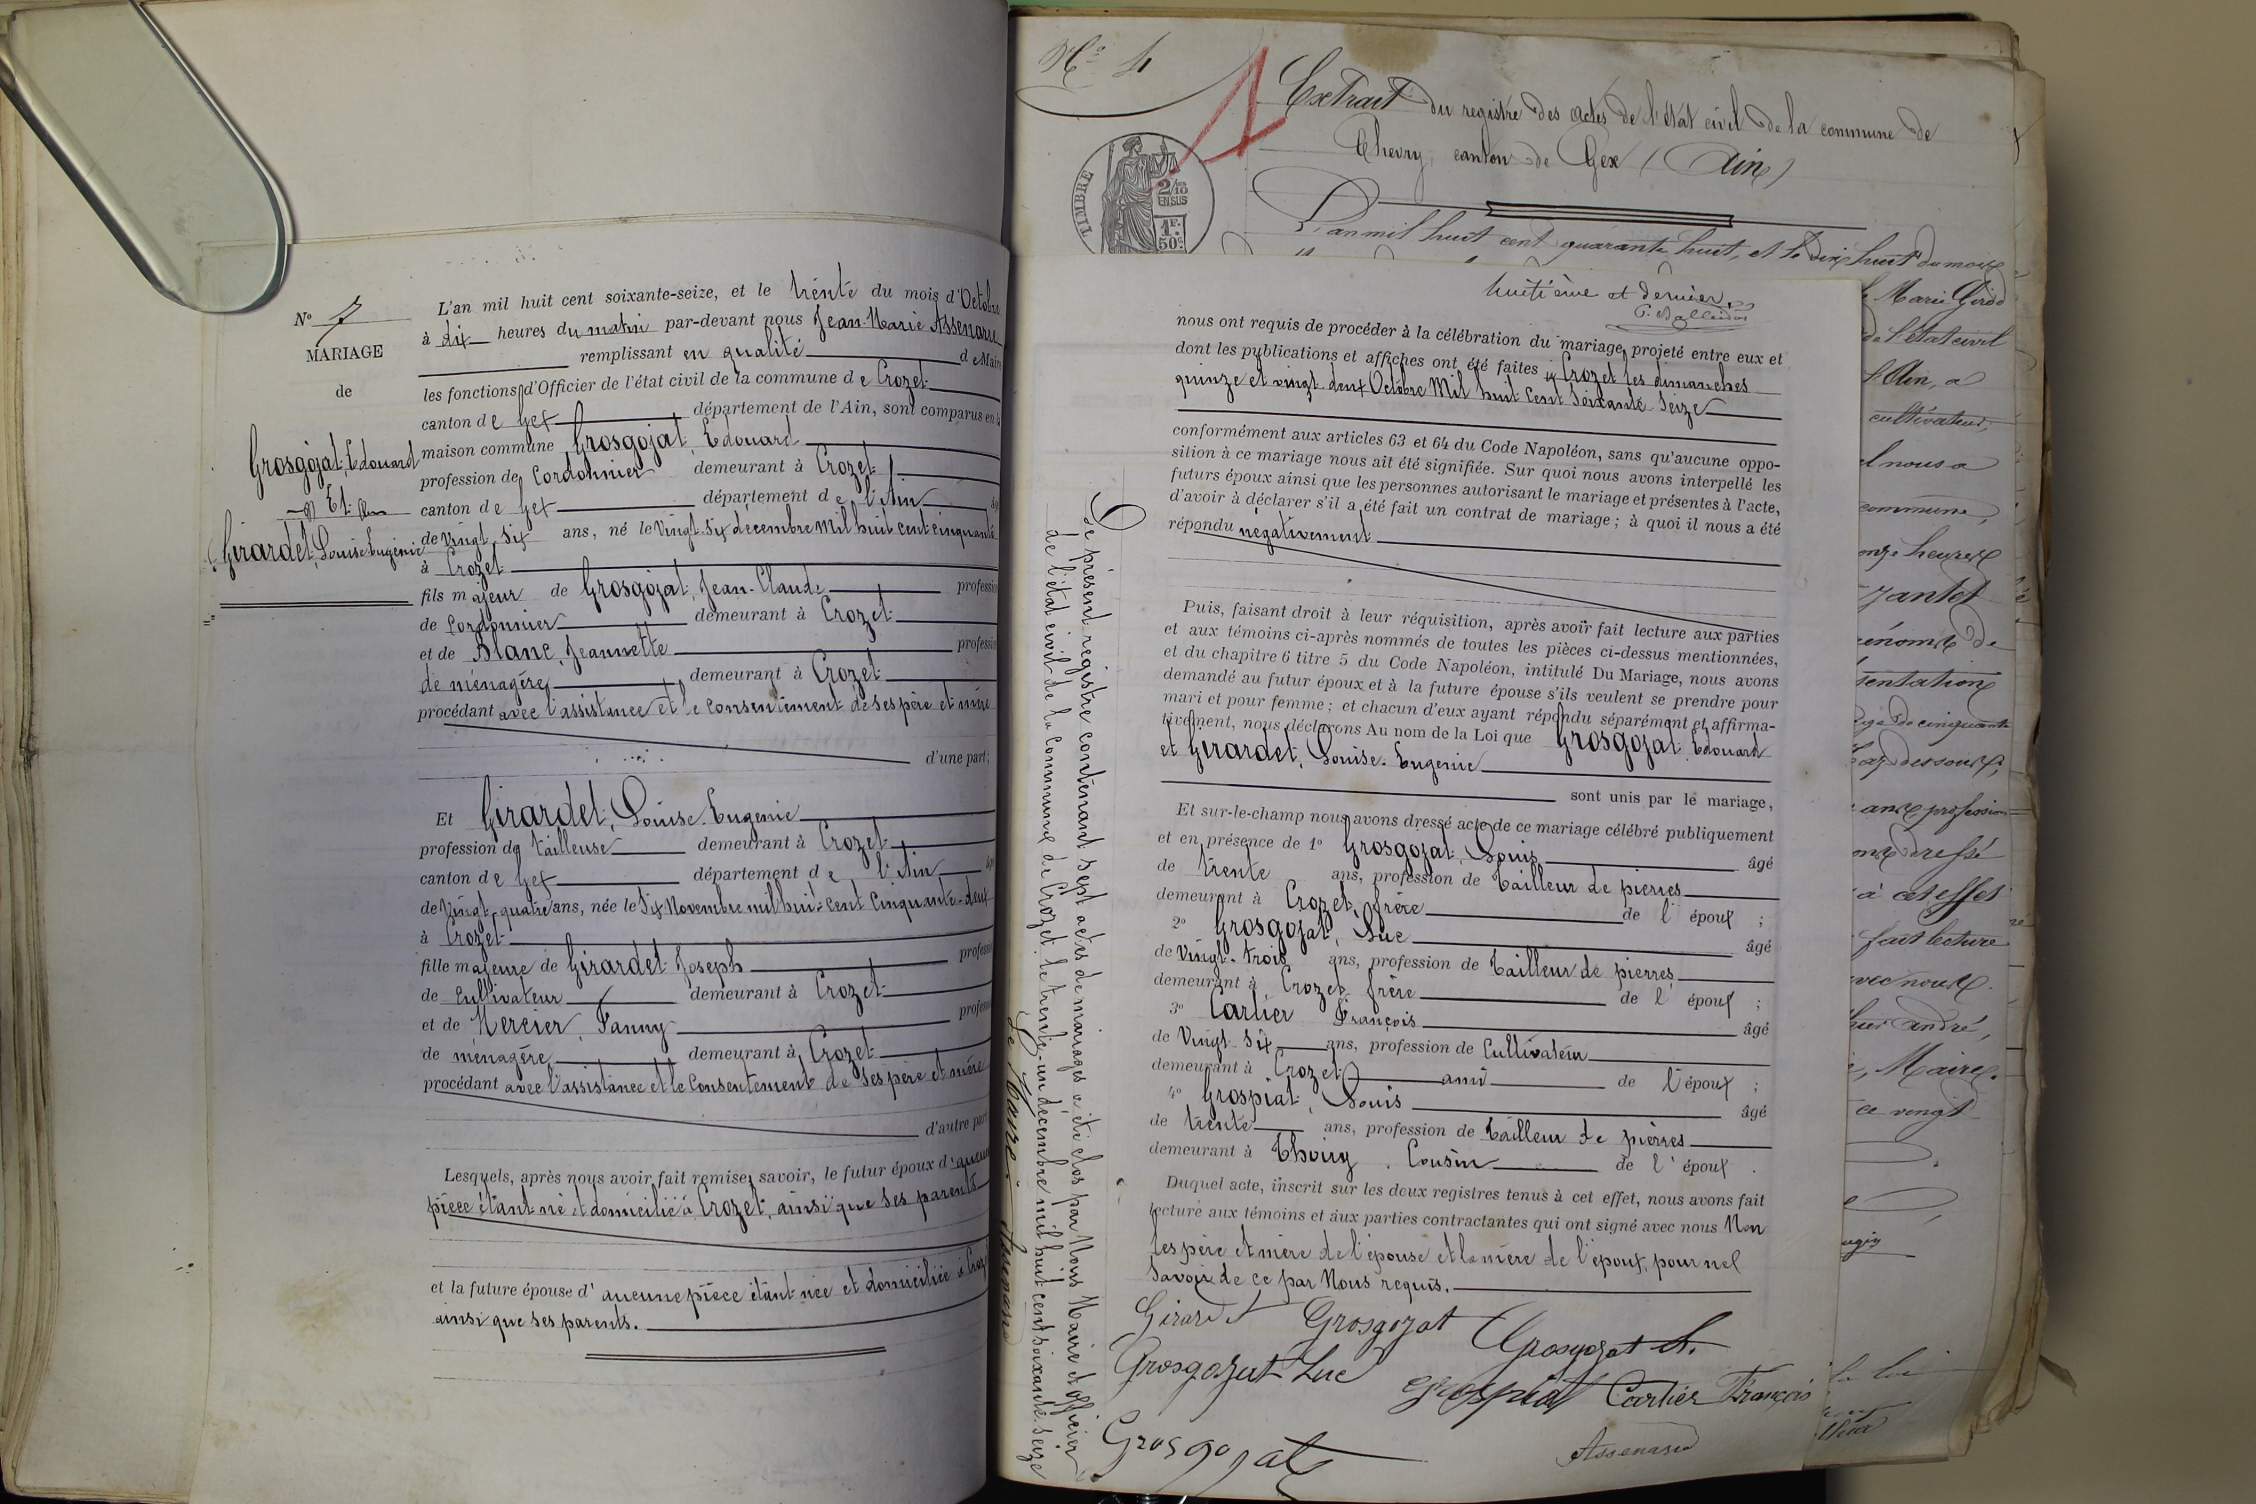 N° 7
MARIAGE
de
Grosgojat, Edouard
Et
Girardet, Louise Eugénie
L'an mil huit cent soixante-seize, et le trente du mois d'Octobre
à dix heures du matin par-devant nous Jean-Marie Assenare
remplissant en qualité de Maire
les fonctions d'Officier de l'état civil de la commune de Crozet
canton de Gex département de l'Ain, sont comparus en la
maison commune Grosgojat, Edouard
profession de Cordonnier demeurant à Crozet
canton de Gex département de l'Ain âgé
de Vingt-Six ans, né le Vingt-Six décembre Mil huit cent cinquante
à Crozet
fils majeur de Grosgojat, Jean-Claude profession
de Cordonnier demeurant à Crozet
et de Blanc, Jeannette profession
de ménagère demeurant à Crozet
procédant avec l'assistance et le Consentement de ses père et mère
d'une part;
Et Girardet, Louise-Eugénie
profession de tailleuse demeurant à Crozet
canton de Gex département de l'Ain âgé
de Vingt-quatre ans, née le Six Novembre mil huit-cent Cinquante-deux
à Crozet
fille majeure de Girardet Joseph profession
de Cultivateur demeurant à Crozet
et de Mercier, Fanny profession
de ménagère demeurant à Crozet
procédant avec l'assistance et le Consentement de ses père et mère
d'autre part
Lesquels, après nous avoir fait remise, savoir, le futur époux d'aucune
pièce étant né et domicilié à Crozet, ainsi que ses parents
et la future épouse d'aucune pièce étant née et domiciliée à Crozet
ainsi que ses parents.
N° 4
Extrait du registre des actes de l'état civil de la commune de
Chevry, canton de Gex (Ain)
TIMBRE
2/10
EN SUS
1F.
50c
L'an mil huit cent quarante huit, et le dix huit du mois
huitième et dernier.
nous ont requis de procéder à la célébration du mariage projeté entre eux et
dont les publications et affiches ont été faites à Crozet les dimanches
quinze et vingt deux Octobre Mil huit Cent Soixante Seize
conformément aux articles 63 et 64 du Code Napoléon, sans qu'aucune oppo-
sition à ce mariage nous ait été signifiée. Sur quoi nous avons interpellé les
futurs époux ainsi que les personnes autorisant le mariage et présentes à l'acte,
d'avoir à déclarer s'il a été fait un contrat de mariage; à quoi il nous a été
répondu négativement
Puis, faisant droit à leur réquisition, après avoir fait lecture aux parties
et aux témoins ci-après nommés de toutes les pièces ci-dessus mentionnées,
et du chapitre 6 titre 5 du Code Napoléon, intitulé Du Mariage, nous avons
demandé au futur époux et à la future épouse s'ils veulent se prendre pour
mari et pour femme; et chacun d'eux ayant répondu séparément et affirma-
tivement, nous déclarons Au nom de la Loi que Grosgojat, Edouard
et Girardet, Louise-Eugénie
sont unis par le mariage,
Et sur-le-champ nous avons dressé acte de ce mariage célébré publiquement
et en présence de 1° Grosgojat, Louis âgé
de trente ans, profession de Tailleur de pierres
demeurant à Crozet, frère de l'époux ;
2° Grosgojat, Luc âgé
de Vingt-trois ans, profession de Tailleur de pierres
demeurant à Crozet frère de l'époux ;
3° Carlier François âgé
de Vingt-Six ans, profession de Cultivateur
demeurant à Crozet ami de l'époux ;
4° Grospiat, Louis âgé
de trente ans, profession de Tailleur de pierres
demeurant à Thoiry, Cousin de l'époux.
Duquel acte, inscrit sur les deux registres tenus à cet effet, nous avons fait
lecture aux témoins et aux parties contractantes qui ont signé avec nous Non
les père et mère de l'épouse et la mère de l'époux, pour nel
Savoir de ce par Nous requis.
Girardet Grosgojat Grosgojat
Grosgojat Luc Grospiat Carlier François
Grosgojat Assenare
Le présent registre contenant sept actes de mariages a été clos par Nous Maire et officier
de l'état civil de la Commune de Crozet, le trente-un décembre mil huit cent soixante-seize
Le Maire: Assenare
Marie Girod
de l'état civil
l'Ain, a
cultivateur,
nous a
commune,
onze heures
de
âgé de cinquante
dessous,
ans profession
dressé
à cet effet
fait lecture
avec nous.
andré,
Maire.
ce vingt
la loi